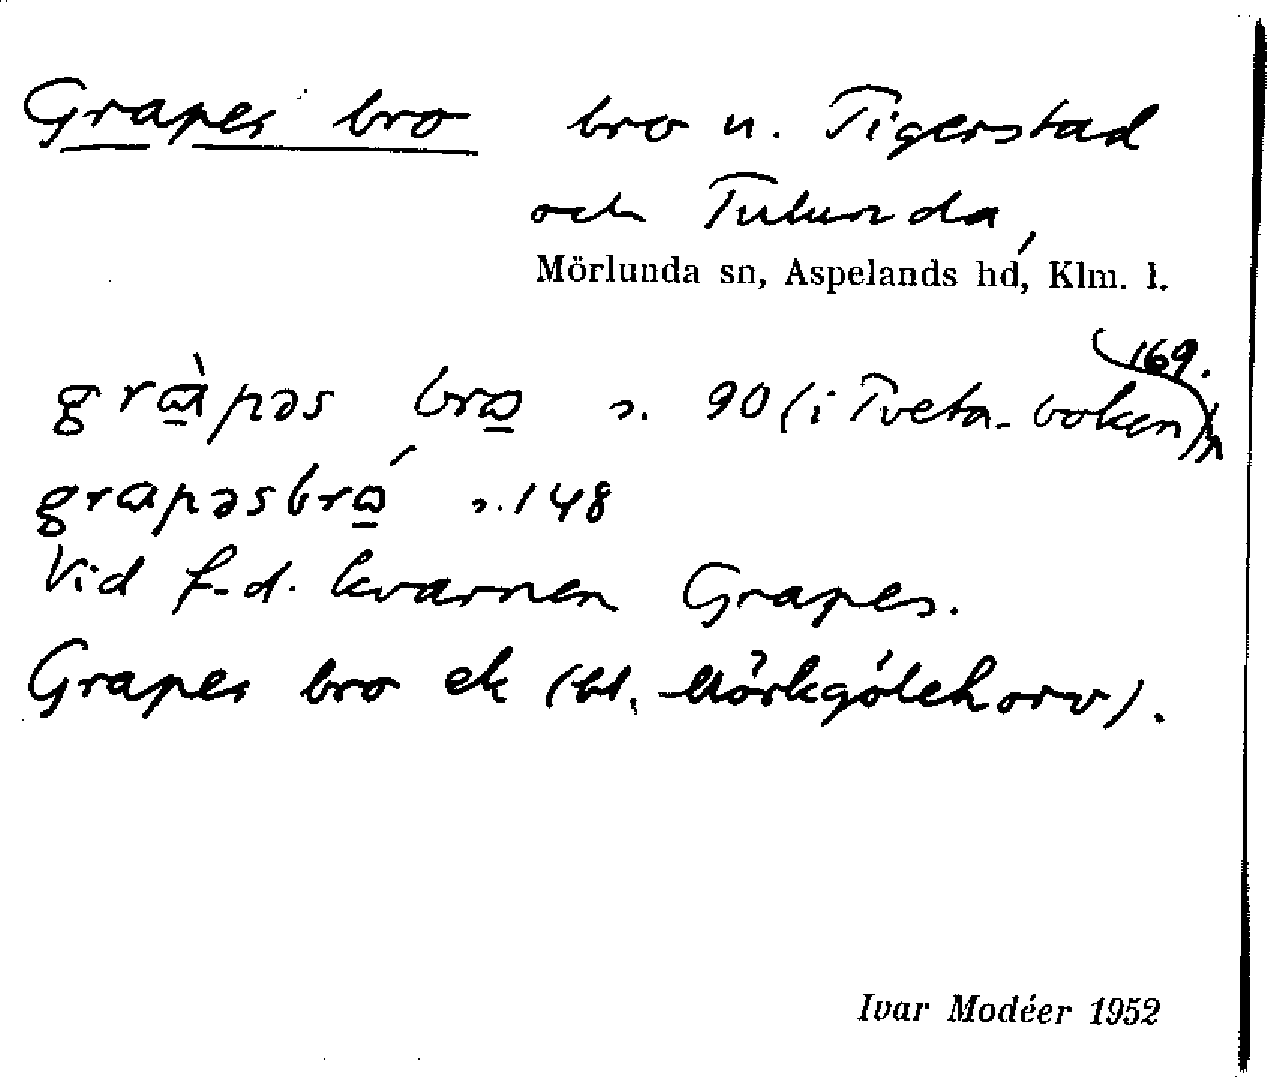 Grapes bro bro n. Tigerstad
och Tulunda,
Mörlunda sn, Aspelands hd, Klm. l.
169.
grɑ̀pəs bro s. 90 (i Tveta-boken)
grɑpəsbró s. 148
Vid f.d. kvarnen Grapes.
Grapes bro ek (bl. Mörkgölehorv).
Ivar Modéer 1952